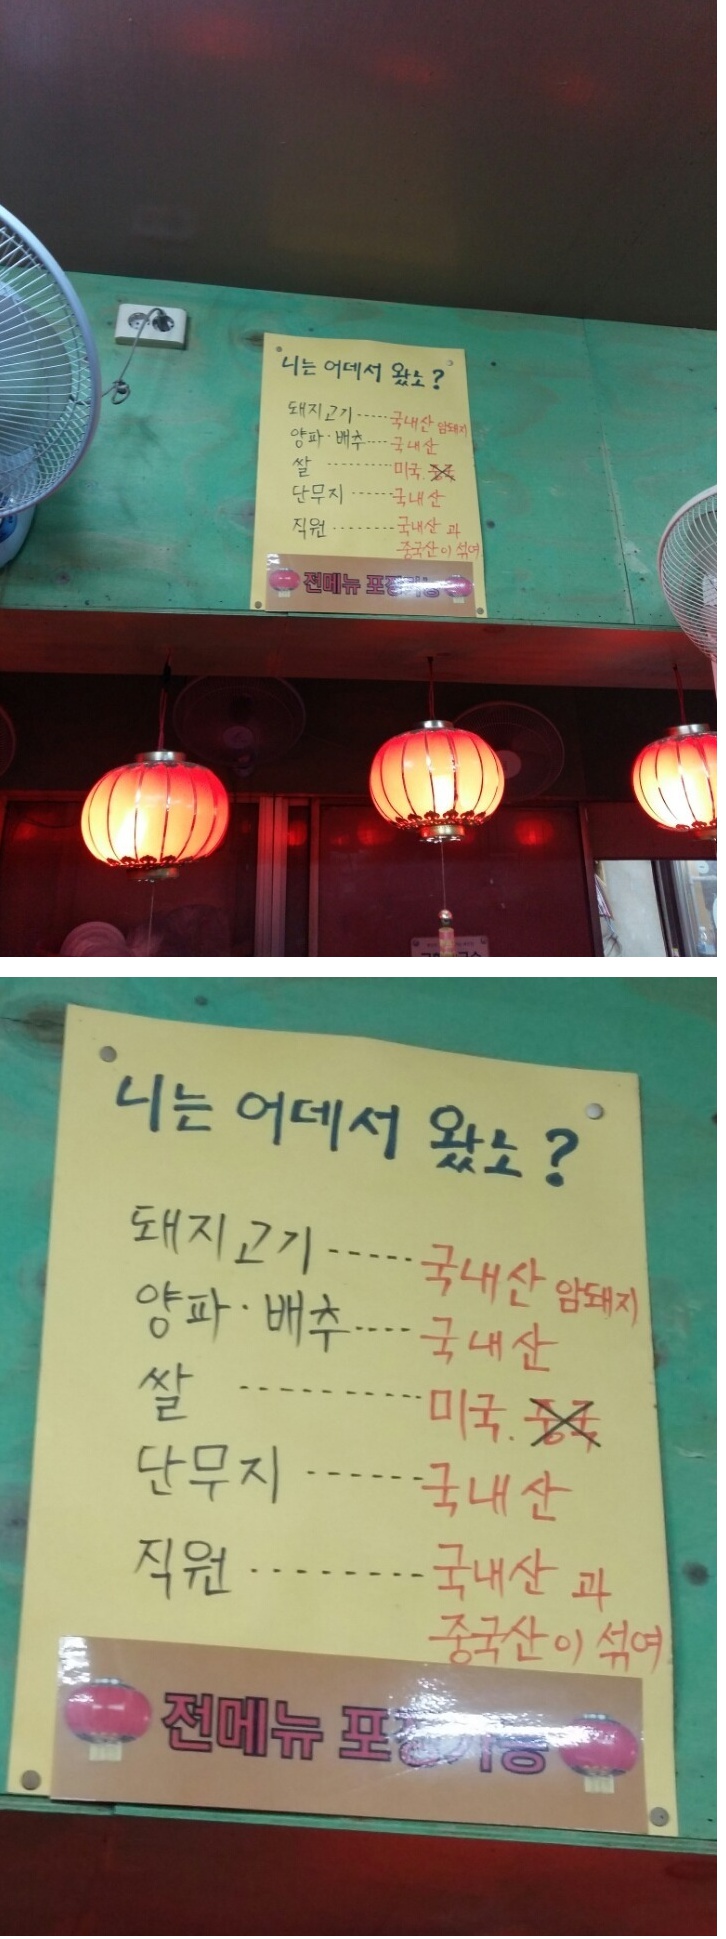 니는 어데서 왔노?
돼지고기 ----- 국내산 암돼지
양파·배추 ---- 국내산
쌀 --------- 미국. 중국
단무지 ------ 국내산
직원 -------- 국내산 과
중국산이 섞여
전메뉴 포장가능
니는 어데서 왔노?
돼지고기 ----- 국내산 암돼지
양파·배추 ---- 국내산
쌀 --------- 미국. 중국
단무지 ------ 국내산
직원 -------- 국내산 과
중국산이 섞여
전메뉴 포장가능